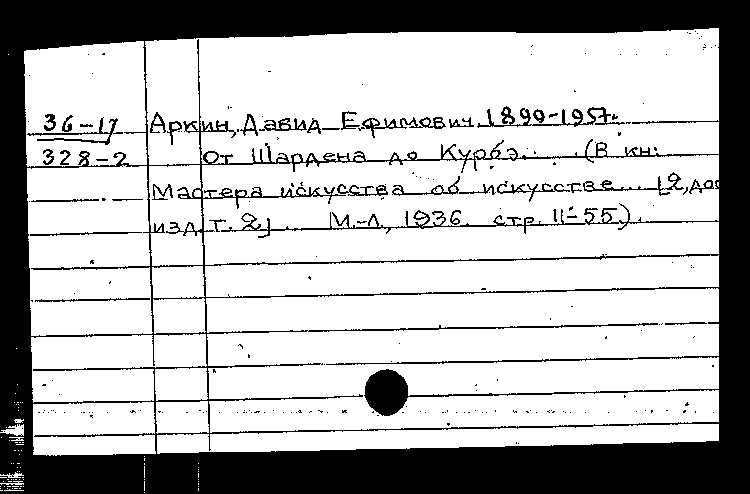 36-17 Аркин, Давид Ефимович, 1899-1957.
328-2 От Шардена до Курбэ. (В кн:
Мастера искусства об искусстве... [2, доп
изд. т. 2] .. М.-Л, 1936. стр. 11-55).